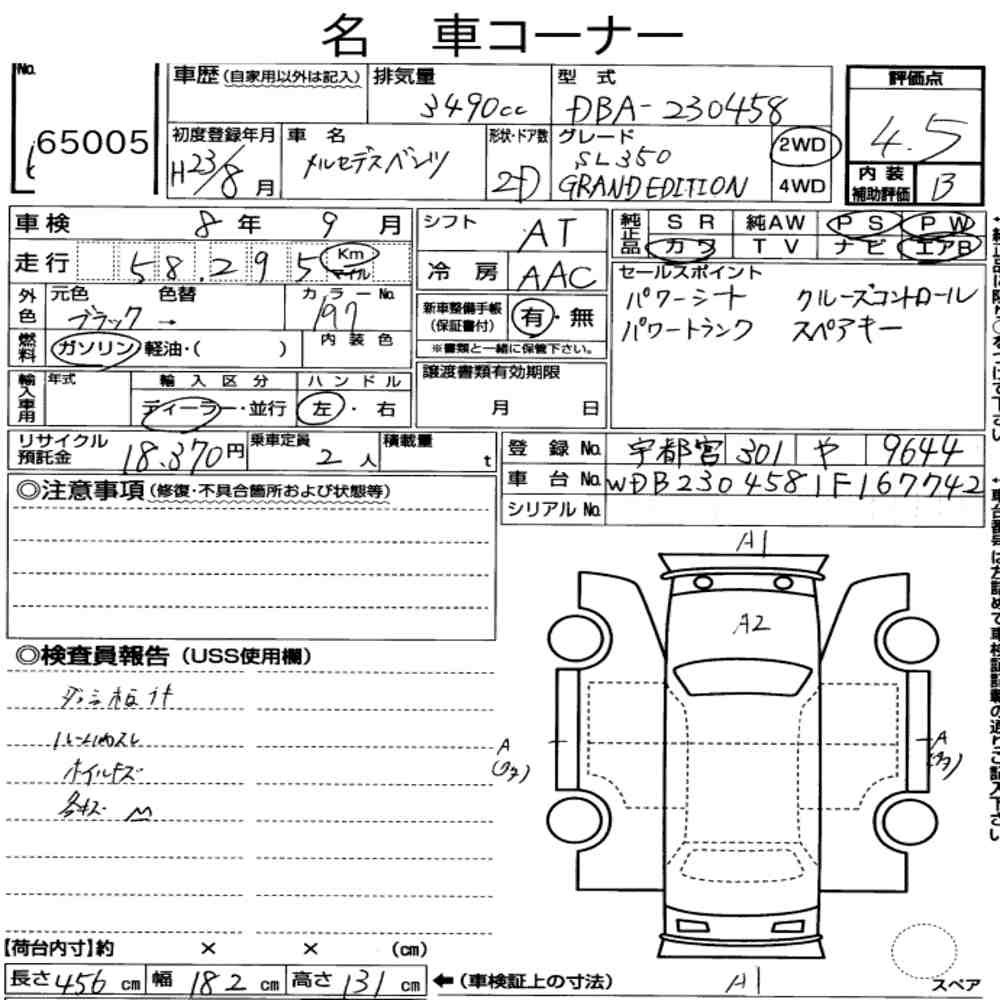 名 車コーナー
No.
65005
車歴(自家用以外は記入)
排気量
3490cc
型 式
DBA-230458
評価点
4.5
初度登録年月
H23/8月
車 名
メルセデスベンツ
形状・ドア数
2D
グレード
SL350
GRAND EDITION
2WD
4WD
内装補助評価
B
車検 8年 9月
シフト AT
純正品 SR 純AW PS PW
カワ TV ナビ エアB
走行 58.295 Km マイル
冷房 AAC
セールスポイント
パワーシート クルーズコントロール
パワートランク スペアキー
外色 元色 色替 カラーNo.
ブラック → 197
新車整備手帳(保証書付) 有・無
※書類と一緒に保管下さい。
燃料 ガソリン 軽油・( ) 内装色
輸入車用 年式 輸入区分 ハンドル
ディーラー・並行 左・右
譲渡書類有効期限
月 日
リサイクル預託金 18.370円
乗車定員 2人
積載量 t
登録No. 宇都宮 301 や 9644
車台No. WDB2304581F167742
シリアルNo.
◎注意事項(修復・不具合箇所および状態等)
◎検査員報告(USS使用欄)
ルーム内スレ
ホイルキズ
A1
A2
A
A
A1
【荷台内寸】約 × × (cm)
長さ 456 cm 幅 182 cm 高さ 131 cm ←(車検証上の寸法)
スペア